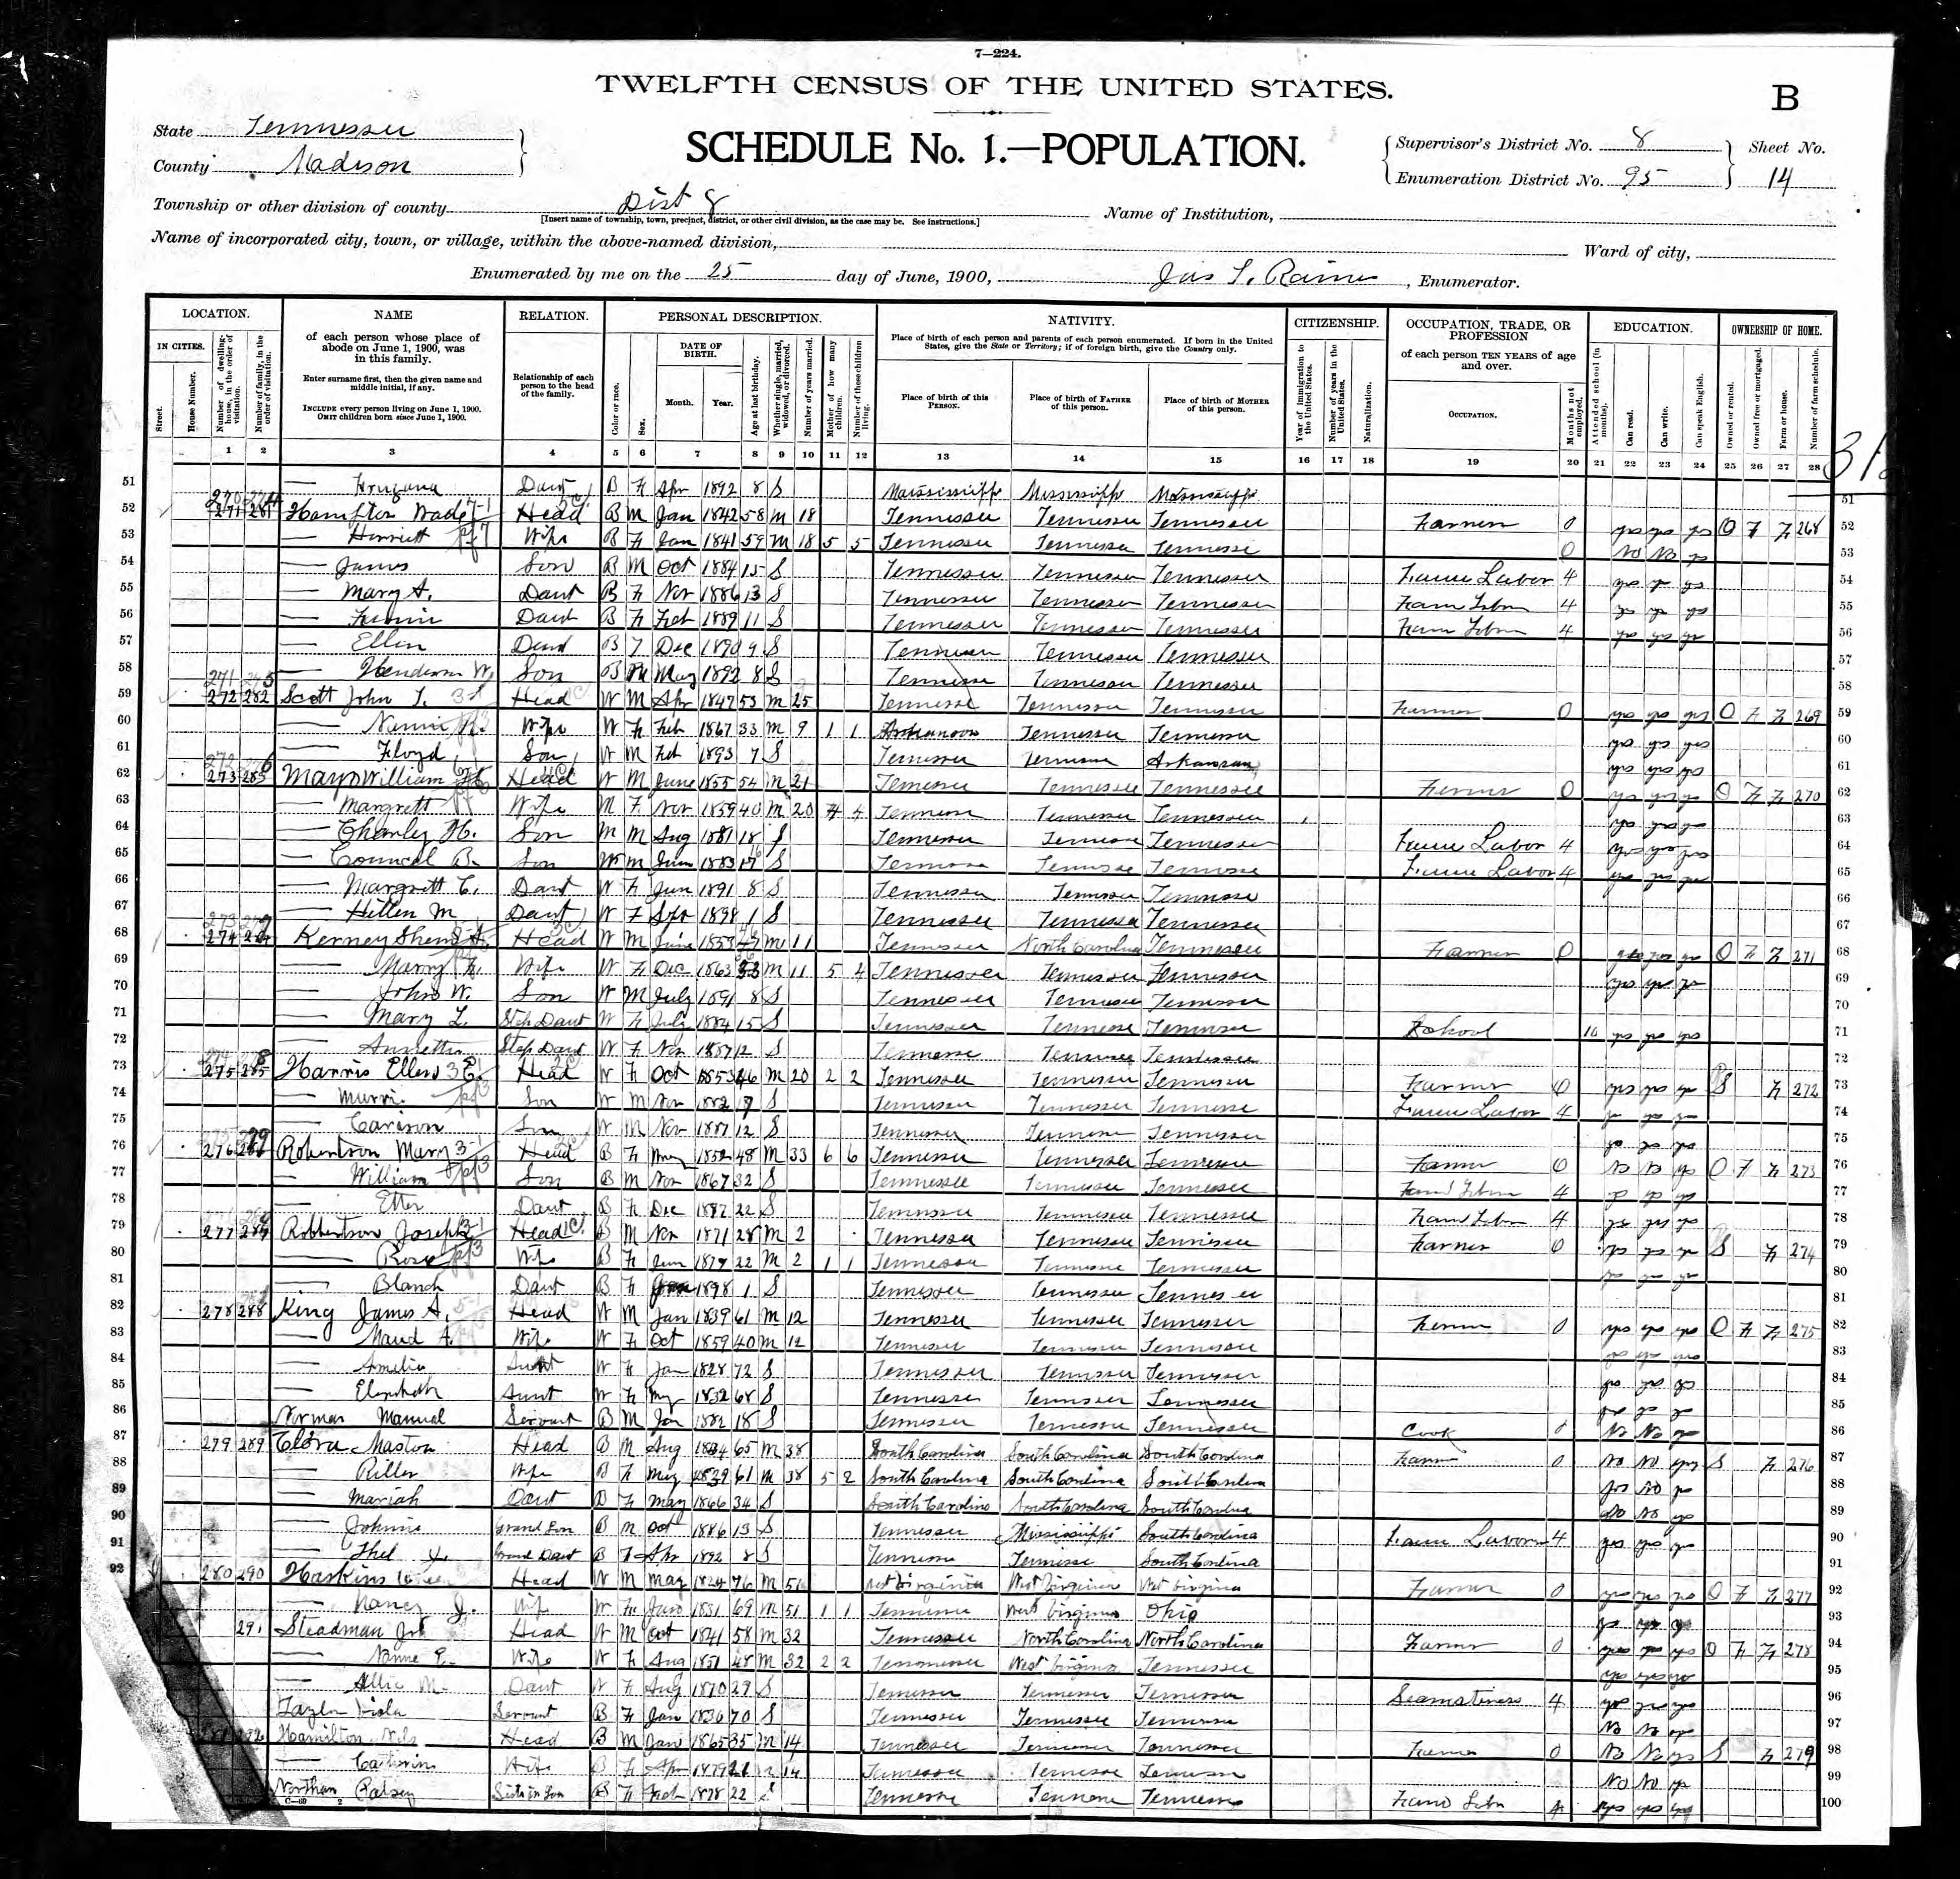 7—224.
TWELFTH CENSUS OF THE UNITED STATES.
B
State Tennessee
County Madison
SCHEDULE No. 1.—POPULATION.
Supervisor's District No. 8
Enumeration District No. 95
Sheet No. 14
Township or other division of county Dist 8
[Insert name of township, town, precinct, district, or other civil division, as the case may be. See instructions.]
Name of Institution,
Name of incorporated city, town, or village, within the above-named division,
Ward of city,
Enumerated by me on the 25 day of June, 1900, Enumerator.
LOCATION. NAME RELATION. PERSONAL DESCRIPTION. NATIVITY. CITIZENSHIP. OCCUPATION, TRADE, OR PROFESSION EDUCATION. OWNERSHIP OF HOME.
IN CITIES. Street. House Number. Number of dwelling-house, in the order of visitation. Number of family, in the order of visitation.
of each person whose place of abode on June 1, 1900, was in this family.
Enter surname first, then the given name and middle initial, if any.
INCLUDE every person living on June 1, 1900. OMIT children born since June 1, 1900.
Relationship of each person to the head of the family.
Color or race. Sex. DATE OF BIRTH. Month. Year. Age at last birthday. Whether single, married, widowed, or divorced. Number of years married. Mother of how many children. Number of these children living.
Place of birth of each person and parents of each person enumerated. If born in the United States, give the State or Territory; if of foreign birth, give the Country only.
Place of birth of this PERSON. Place of birth of FATHER of this person. Place of birth of MOTHER of this person.
Year of immigration to the United States. Number of years in the United States. Naturalization.
of each person TEN YEARS of age and over.
OCCUPATION. Months not employed.
Attended school (in months). Can read. Can write. Can speak English.
Owned or rented. Owned free or mortgaged. Farm or house. Number of farm schedule.
1 2 3 4 5 6 7 8 9 10 11 12 13 14 15 16 17 18 19 20 21 22 23 24 25 26 27 28
51 Daut B F Apr 1892 8 S Mississippi Mississippi Mississippi 51
52 271 281 Hampton Wade Head B M Jan 1842 58 M 18 Tennessee Tennessee Tennessee Farmer 0 yes yes yes O F F 268 52
53 Harriett Wife B F Jan 1841 59 M 18 5 5 Tennessee Tennessee Tennessee 0 No No yes 53
54 James Son B M Oct 1884 15 S Tennessee Tennessee Tennessee Farm Labor 4 yes yes yes 54
55 Mary A. Daut B F Nov 1886 13 S Tennessee Tennessee Tennessee Farm Labor 4 yes yes yes 55
56 Daut B F Feb 1889 11 S Tennessee Tennessee Tennessee Farm Labor 4 yes yes yes 56
57 Ellen Daut B F Dec 1890 9 S Tennessee Tennessee Tennessee 57
58 Henderson W. Son B M May 1892 8 S Tennessee Tennessee Tennessee 58
59 272 282 Scott John T. Head W M Apr 1847 53 M 25 Tennessee Tennessee Tennessee Farmer 0 yes yes yes O F F 269 59
60 Nannie Wife W F Feb 1867 33 M 9 1 1 Arkansas Tennessee Tennessee yes yes yes 60
61 Floyd Son W M Feb 1893 7 S Tennessee Tennessee Arkansas yes yes yes 61
62 273 283 Mayo William Head W M June 1855 54 M 21 Tennessee Tennessee Tennessee Farmer 0 yes yes yes O F F 270 62
63 Margrett Wife F Nov 1859 40 M 20 4 4 Tennessee Tennessee Tennessee yes yes yes 63
64 Charley H. Son M Aug 1881 18 S Tennessee Tennessee Tennessee Farm Labor 4 yes yes yes 64
65 Council B. Son W M 1883 S Tennessee Tennessee Tennessee Farm Labor 4 yes yes yes 65
66 Margrett C. Daut W F Jun 1891 8 S Tennessee Tennessee Tennessee 66
67 Hellen M Daut W F 1898 1 S Tennessee Tennessee Tennessee 67
68 274 284 Kerney Head W M June 1853 M 11 Tennessee North Carolina Tennessee Farmer 0 yes yes yes O F F 271 68
69 Mary F. Wife W F Dec 1863 M 11 5 4 Tennessee Tennessee Tennessee yes yes yes 69
70 John W. Son W M July 1891 8 S Tennessee Tennessee Tennessee 70
71 Mary L. Step Daut W F July 1884 15 S Tennessee Tennessee Tennessee School yes yes yes 71
72 Step Daut W F Nov 1887 12 S Tennessee Tennessee Tennessee 72
73 275 285 Harris Ellen Head W F Oct 1853 46 M 20 2 2 Tennessee Tennessee Tennessee Farmer 0 yes yes yes F 272 73
74 Son W M Nov 1882 S Tennessee Tennessee Tennessee Farm Labor 4 yes yes yes 74
75 Son W M Nov 1887 12 S Tennessee Tennessee Tennessee yes yes yes 75
76 276 286 Robertson Mary Head B F May 1852 48 M 33 6 6 Tennessee Tennessee Tennessee Farmer 0 No No yes O F F 273 76
77 William Son B M Nov 1867 32 S Tennessee Tennessee Tennessee Farm Labor 4 yes yes yes 77
78 Etter Daut B F Dec 22 S Tennessee Tennessee Tennessee Farm Labor 4 yes yes yes 78
79 277 287 Robertson Joseph Head B M Nov 1871 28 M 2 Tennessee Tennessee Tennessee Farmer 0 yes yes yes F 274 79
80 Rose Wife B F Jun 22 M 2 1 1 Tennessee Tennessee Tennessee yes yes yes 80
81 Blanch Daut B F 1898 1 S Tennessee Tennessee Tennessee 81
82 278 288 King James A. Head W M Jan 1839 61 M 12 Tennessee Tennessee Tennessee Farmer 0 yes yes yes O F F 275 82
83 Maud A. Wife W F Oct 1859 40 M 12 Tennessee Tennessee Tennessee yes yes yes 83
84 Amelia Aunt W F Jan 1828 72 S Tennessee Tennessee Tennessee yes yes yes 84
85 Elizabeth Aunt W F May 1832 68 S Tennessee Tennessee Tennessee yes yes yes 85
86 Norman Manuel Servant B M Jan 1882 18 S Tennessee Tennessee Tennessee Cook 0 No No yes 86
87 279 289 Maston Head B M Aug 1834 65 M 38 South Carolina South Carolina South Carolina Farmer 0 No No yes F 276 87
88 Wife B F May 1839 61 M 38 5 2 South Carolina South Carolina South Carolina yes No yes 88
89 Mariah Daut B F May 1866 34 S South Carolina South Carolina South Carolina No No yes 89
90 Johnie Grand Son B M Oct 1886 13 S Tennessee Mississippi South Carolina Farm Labor 4 yes yes yes 90
91 Grand Daut B F Apr 1892 8 S Tennessee Tennessee South Carolina 91
92 280 290 Haskins Head W M May 1824 76 M 51 West Virginia West Virginia West Virginia Farmer 0 yes yes yes O F F 277 92
Nancy J. Wife W F June 1831 69 M 51 1 1 Tennessee West Virginia Ohio yes yes yes 93
291 Steadman Head W M Oct 1841 58 M 32 Tennessee North Carolina North Carolina Farmer 0 yes yes yes O F F 278 94
Nannie E. Wife W F Aug 1851 48 M 32 2 2 Tennessee West Virginia Tennessee yes yes yes 95
Allie M. Daut W F Aug 1870 29 S Tennessee Tennessee Tennessee Seamstress 4 yes yes yes 96
Servant B F Jan 70 S Tennessee Tennessee Tennessee No No yes 97
292 Hamilton Head B M Jan 1865 35 M 14 Tennessee Tennessee Tennessee Farmer 0 No No yes F 279 98
Wife B F Apr 1879 21 14 Tennessee Tennessee Tennessee No No yes 99
Patsey B F Feb 1878 22 S Tennessee Tennessee Tennessee Farm Labor 4 yes yes yes 100